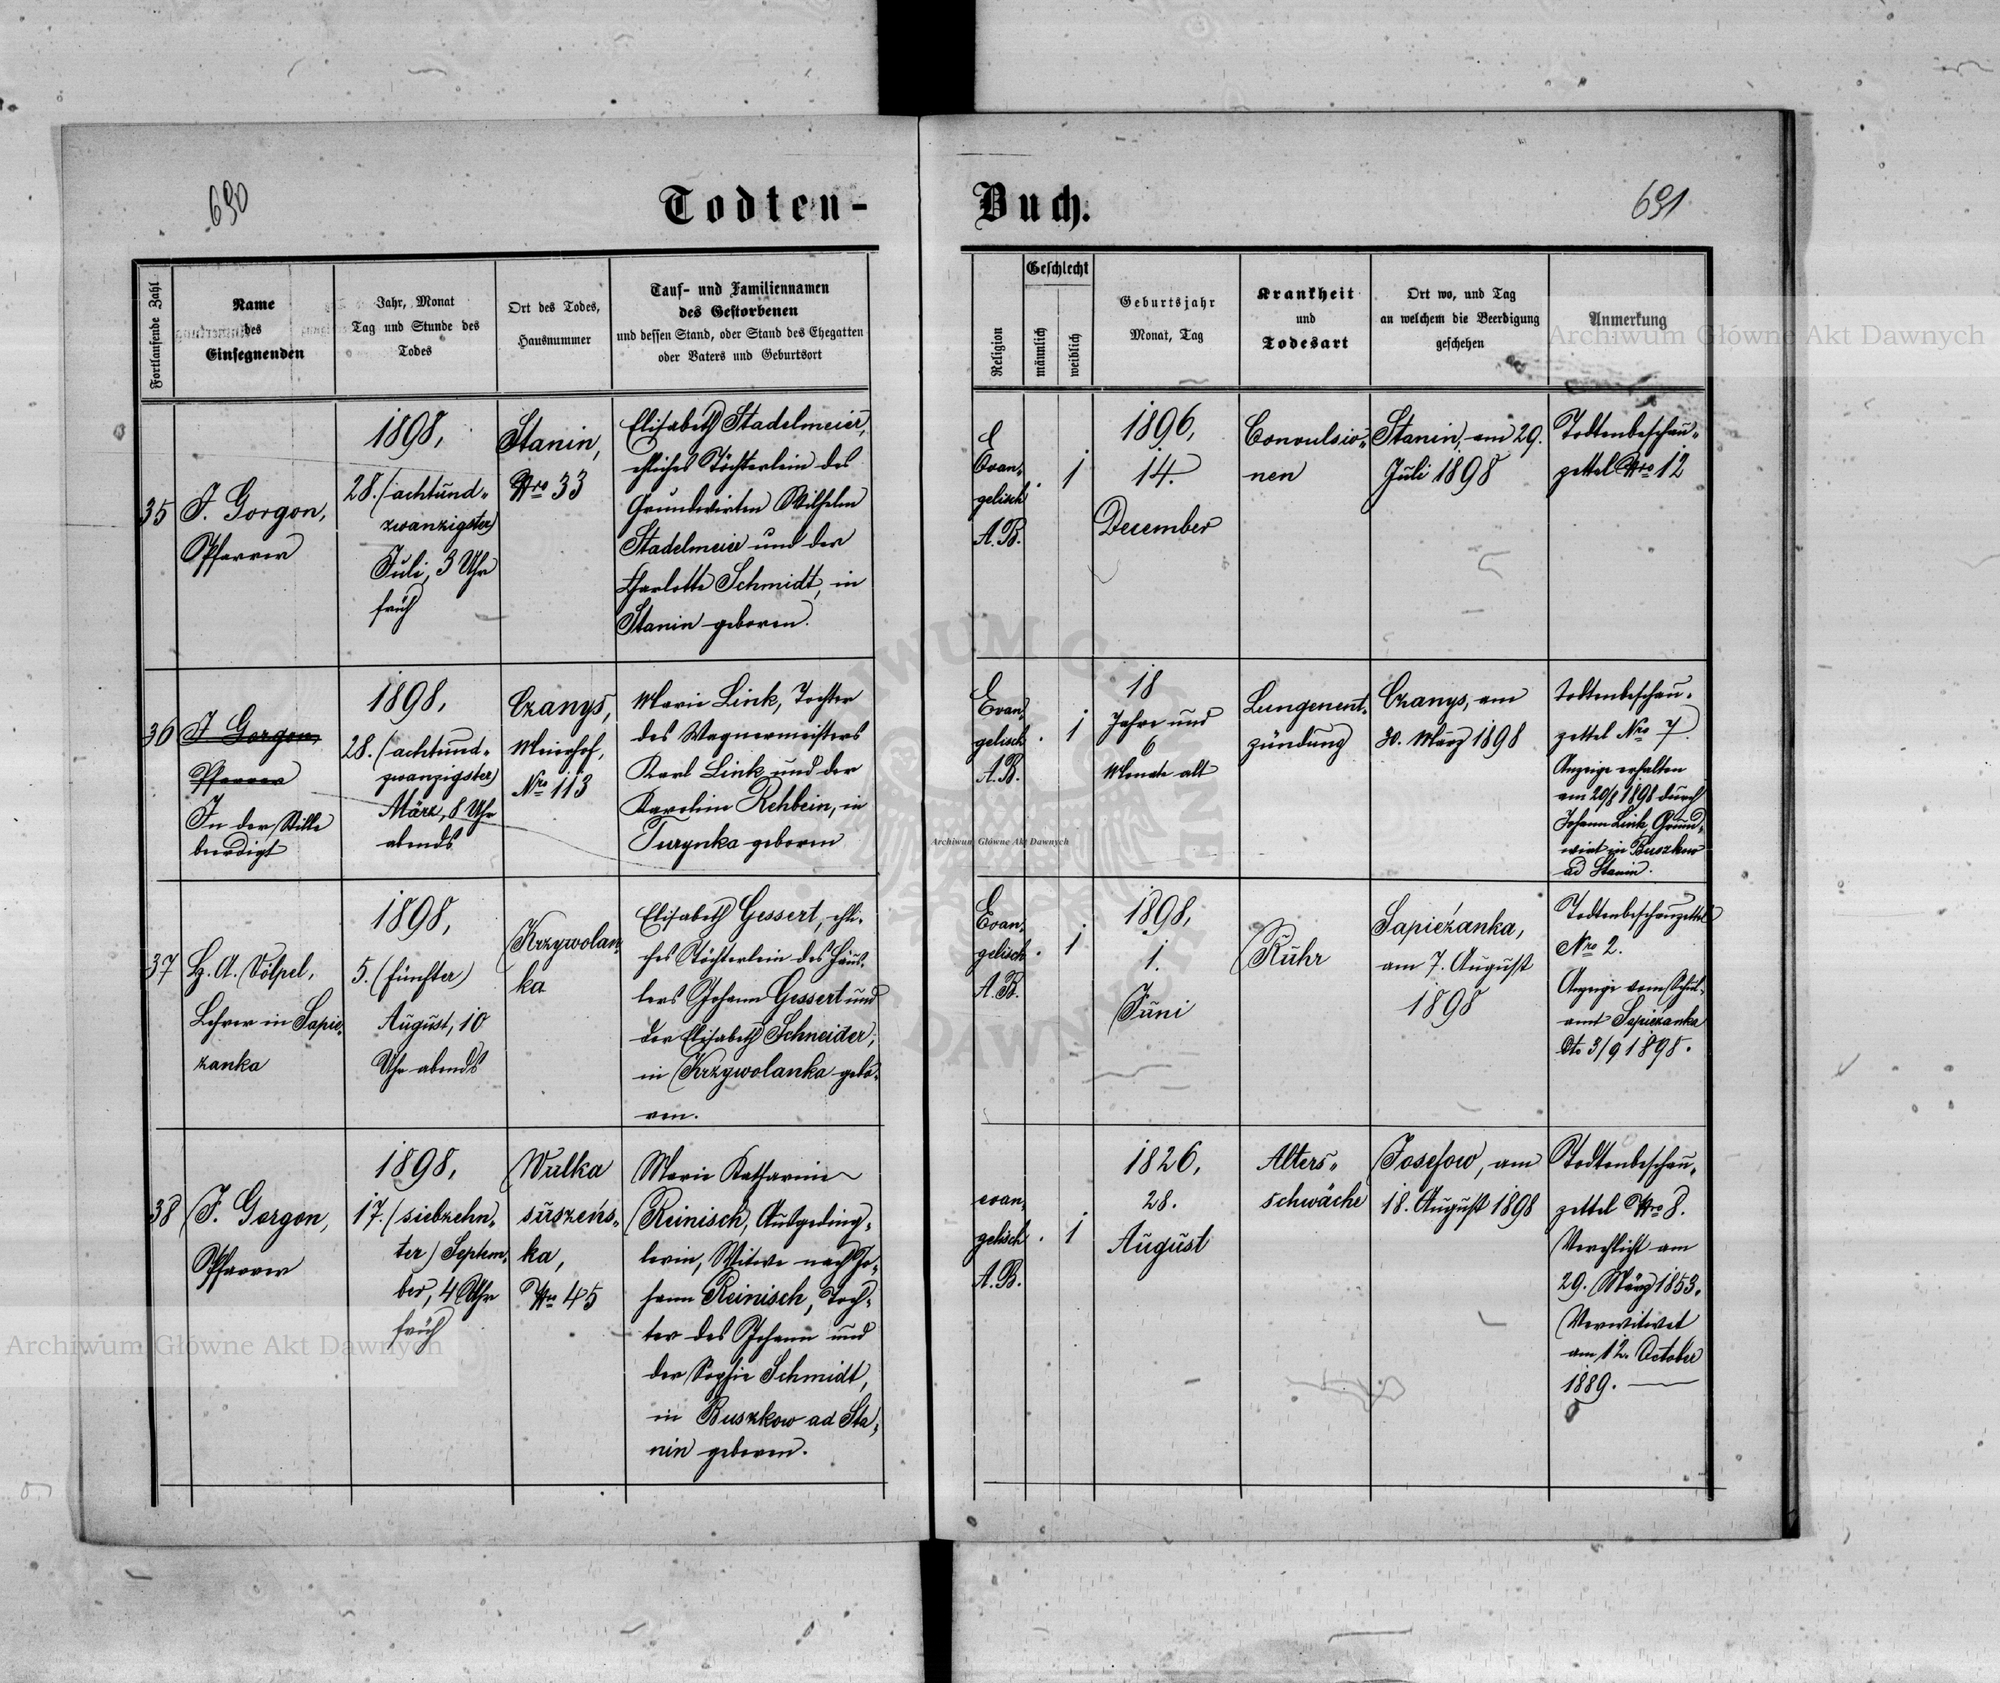 690
Todten-
Buch.
691
Fortlaufende Zahl
Name
des
Einsegnenden
Jahr, Monat
Tag und Stunde des
Todes
Ort des Todes,
Hausnummer
Tauf- und Familiennamen
des Gestorbenen
und dessen Stand, oder Stand des Ehegatten
oder Vaters und Geburtsort
Religion
Geschlecht
männlich
weiblich
Geburtsjahr
Monat, Tag
Krankheit
und
Todesart
Ort wo, und Tag
an welchem die Beerdigung
geschehen
Anmerkung
35
F. Gorgon,
Pfarrer
1898,
28. (achtund-
zwanzigster)
Juli, 3 Uhr
früh
Stanin,
Nro 33
Elisabeth Stadelmeier,
eheliches Töchterlein des
Grundwirten Wilhelm
Stadelmeier und der
Charlotte Schmidt, in
Stanin geboren.
E
Evan-
gelisch
A.B.
.
1
1896,
14.
December
Convulsio-
nen
Stanin, am 29.
Juli 1898
Todtenbeschau-
zettel Nro 12
36
F. Gorgon,
Pfarrer
In der Stille
beerdigt
1898,
28. (achtund-
zwanzigster)
März, 8 Uhr
abends
Czanys,
Meierhof,
Nro 113
Marie Link, Tochter
des Wagnermeisters
Karl Link und der
Karoline Rehbein, in
Turynka geboren
E
Evan-
gelisch
A.B.
.
1
18
Jahre und
6
Monate alt
Lungenent-
zündung
Czanys, am
30. März 1898
Todtenbeschau-
zettel Nro 7
Anzeige erhalten
am 20/8 1898 durch
Johann Link, Grund-
wirt in Buszkow
ad Stanin.
37
H. A. Völpel,
Lehrer in Sapie-
zanka
1898,
5. (fünfter)
August, 10
Uhr abends
Krzywolan-
ka
Elisabeth Gessert, ehli-
ches Töchterlein des Häus-
lers Johann Gessert und
der Elisabeth Schneider,
in Krzywolanka gebo-
ren.
E
Evan-
gelisch
A.B.
.
1
1898,
1.
Juni
Ruhr
Sapieżanka,
am 7. August
1898
Todtenbeschauzettel
Nro 2.
Anzeige vom Schul-
amt Sapiezanka
dto 3/9 1898.
38
F. Gorgon,
Pfarrer
1898,
17. (siebzehn-
ter) Septem-
ber, 4 Uhr
früh
Wulka
suszens-
ka,
Nro 45
Marie Katharine
Reinisch, Ausgeding-
lerin, Witwe nach Jo-
hann Reinisch, Toch-
ter des Johann und
der Sophie Schmidt,
in Buszkow ad Sta-
nin geboren.
evan-
gelisch
A.B.
.
1
1826,
28.
August
Alters-
schwäche
Josefow, am
18. August 1898
Todtenbeschau-
zettel Nro 8.
Verehlicht am
29. März 1853.
Verwitwet
am 12. October
1889.
Archiwum Główne Akt Dawnych
Archiwum Główne Akt Dawnych
Archiwum Główne Akt Dawnych